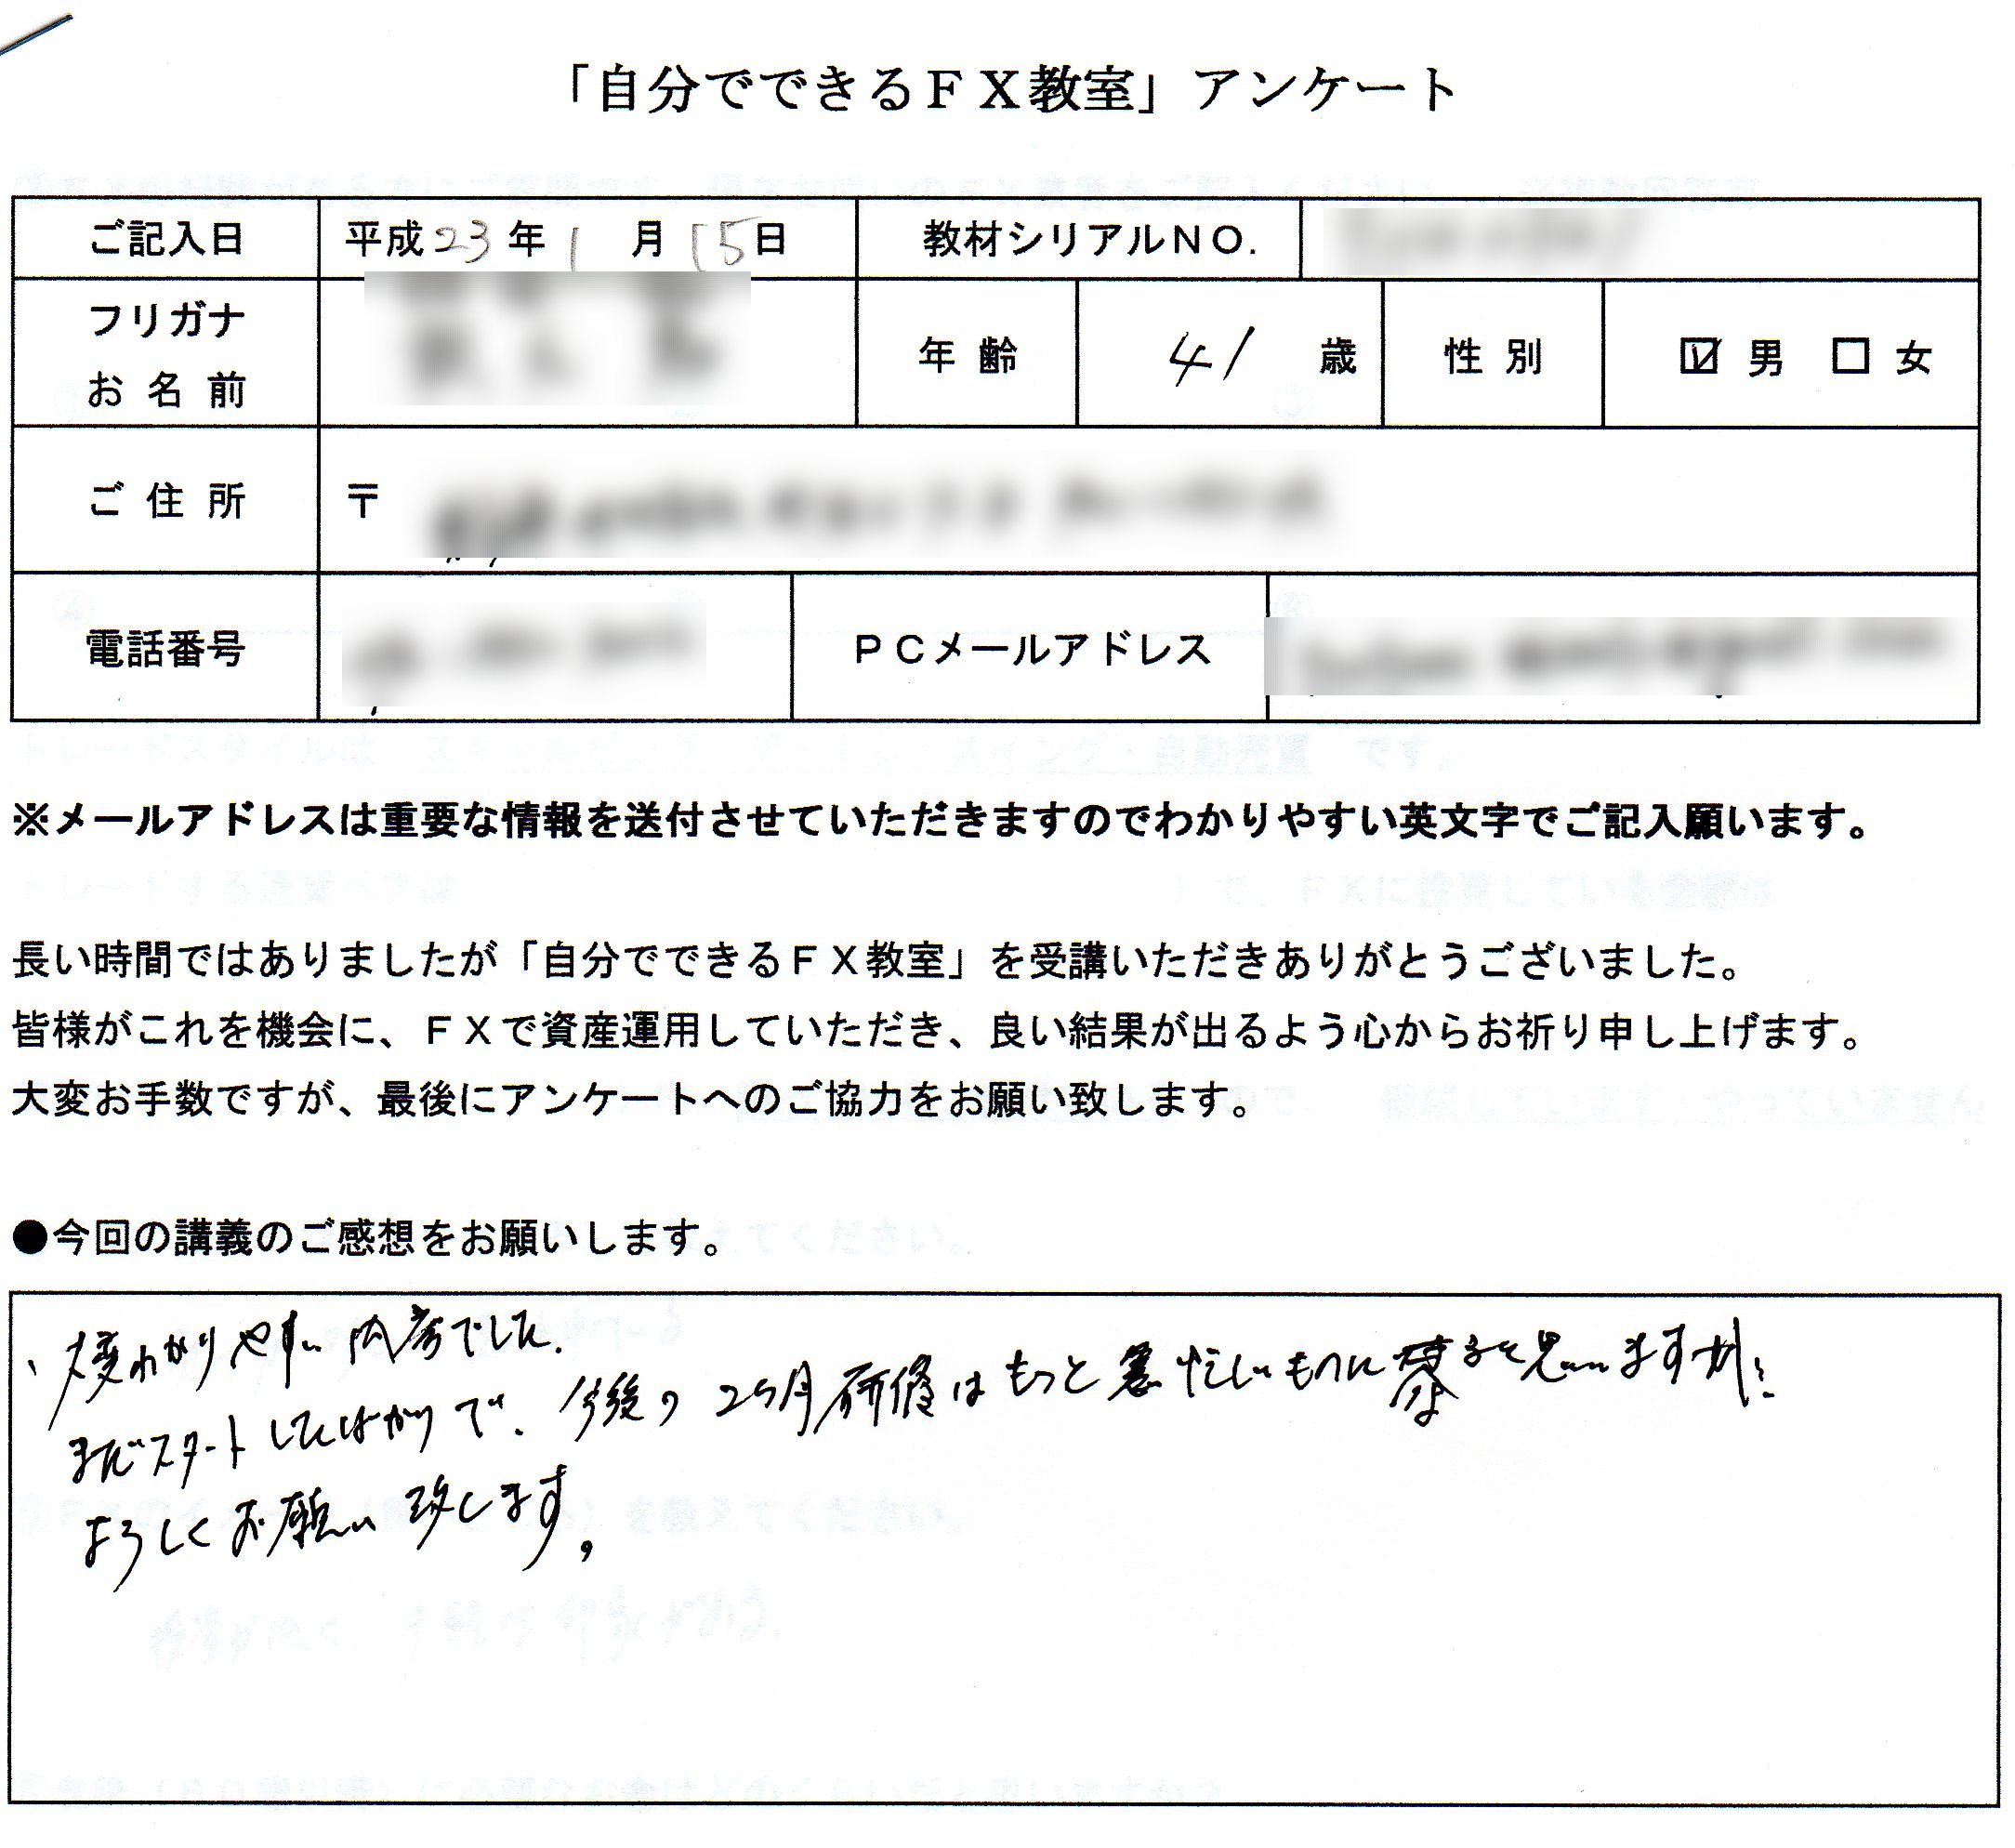 「自分でできるＦＸ教室」アンケート
ご記入日 平成23年1月15日 教材シリアルＮＯ.
フリガナ
お名前 年齢 41 歳 性別 ☑男 □女
ご住所 〒
電話番号 ＰＣメールアドレス
※メールアドレスは重要な情報を送付させていただきますのでわかりやすい英文字でご記入願います。
長い時間ではありましたが「自分でできるＦＸ教室」を受講いただきありがとうございました。
皆様がこれを機会に、ＦＸで資産運用していただき、良い結果が出るよう心からお祈り申し上げます。
大変お手数ですが、最後にアンケートへのご協力をお願い致します。
●今回の講義のご感想をお願いします。
、大変わかりやすい内容でした.
まだスタートしたばかりで、今後の2ヶ月研修はもっと 忙しいものに ると思いますが…
よろしくお願い致します。